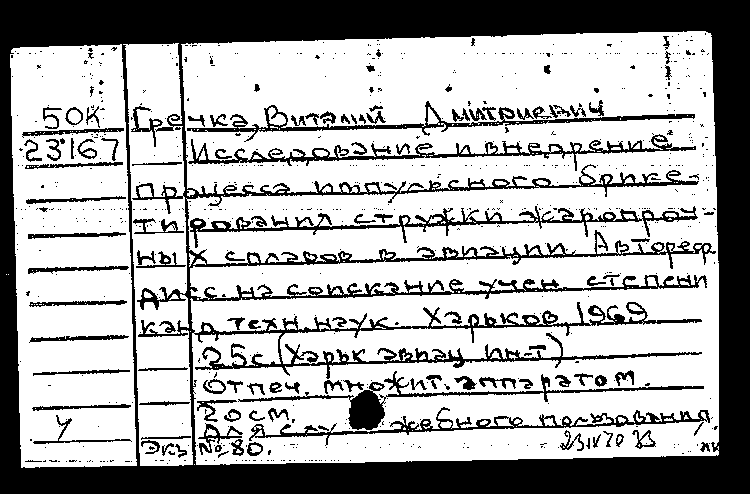 50К Гречка, Виталий Дмитриевич
23167 Исследование и внедрение
процесса импульсного брике-
тирования стружки жаропроч-
ных сплавов в авиации. Автореф.
дисс. на соискание учен. степени
канд. техн. наук. Харьков, 1969
25с. (Харьк авиац ин-т).
Отпеч. множит. аппаратом.
20см.
У Для служебного пользования.
Экз №80.